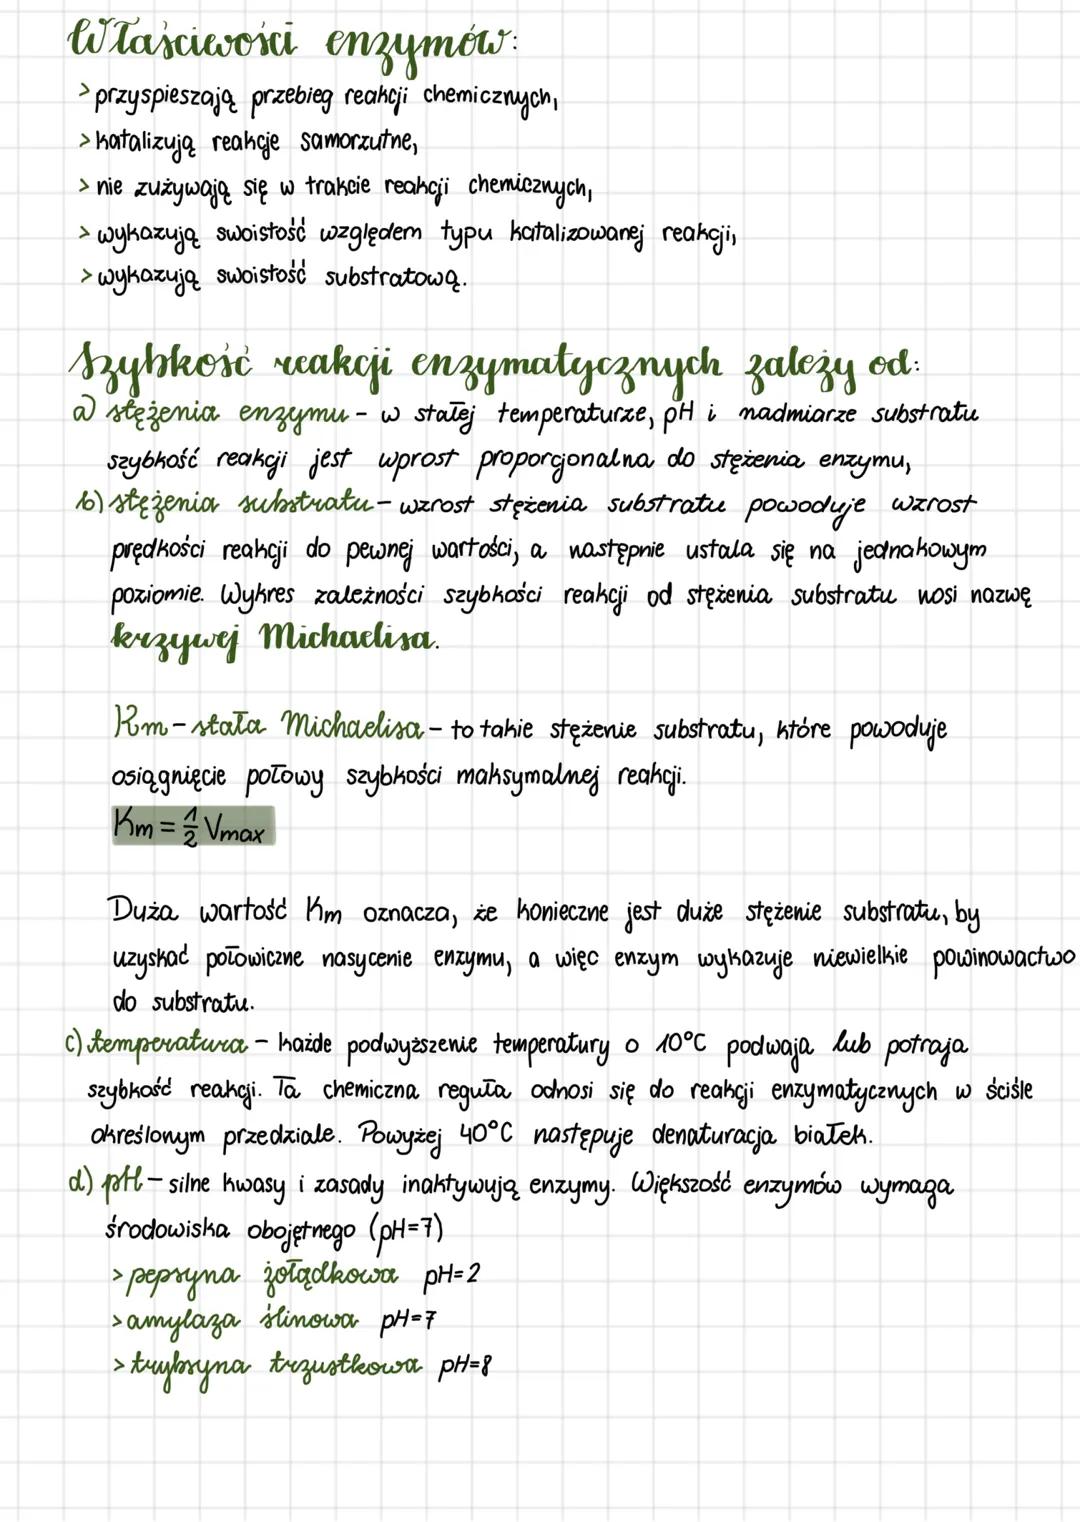 Właściwości enzymów:
> przyspieszają przebieg reakcji chemicznych,
> katalizują reakcje samorzutne,
> nie zużywają się w trakcie reakcji chemicznych,
> wykazują swoistość względem typu katalizowanej reakcji,
> wykazują swoistość substratową.
Szybkość reakcji enzymatycznych zależy od:
a) stężenia enzymu - w stałej temperaturze, pH i nadmiarze substratu
szybkość reakcji jest wprost proporcjonalna do stężenia enzymu,
b) stężenia substratu - wzrost stężenia substratu powoduje wzrost
prędkości reakcji do pewnej wartości, a następnie ustala się na jednakowym
poziomie. Wykres zależności szybkości reakcji od stężenia substratu nosi nazwę
krzywej Michaelisa.
Km - stała Michaelisa - to takie stężenie substratu, które powoduje
osiągnięcie połowy szybkości maksymalnej reakcji.
Km = 1/2 Vmax
Duża wartość Km oznacza, że konieczne jest duże stężenie substratu, by
uzyskać połowiczne nasycenie enzymu, a więc enzym wykazuje niewielkie powinowactwo
do substratu.
c) temperatura - każde podwyższenie temperatury o 10°C podwaja lub potraja
szybkość reakcji. Ta chemiczna reguła odnosi się do reakcji enzymatycznych w ściśle
określonym przedziale. Powyżej 40°C następuje denaturacja białek.
d) pH - silne kwasy i zasady inaktywują enzymy. Większość enzymów wymaga
środowiska obojętnego (pH=7)
> pepsyna żołądkowa pH=2
> amylaza ślinowa pH=7
> trypsyna trzustkowa pH=8